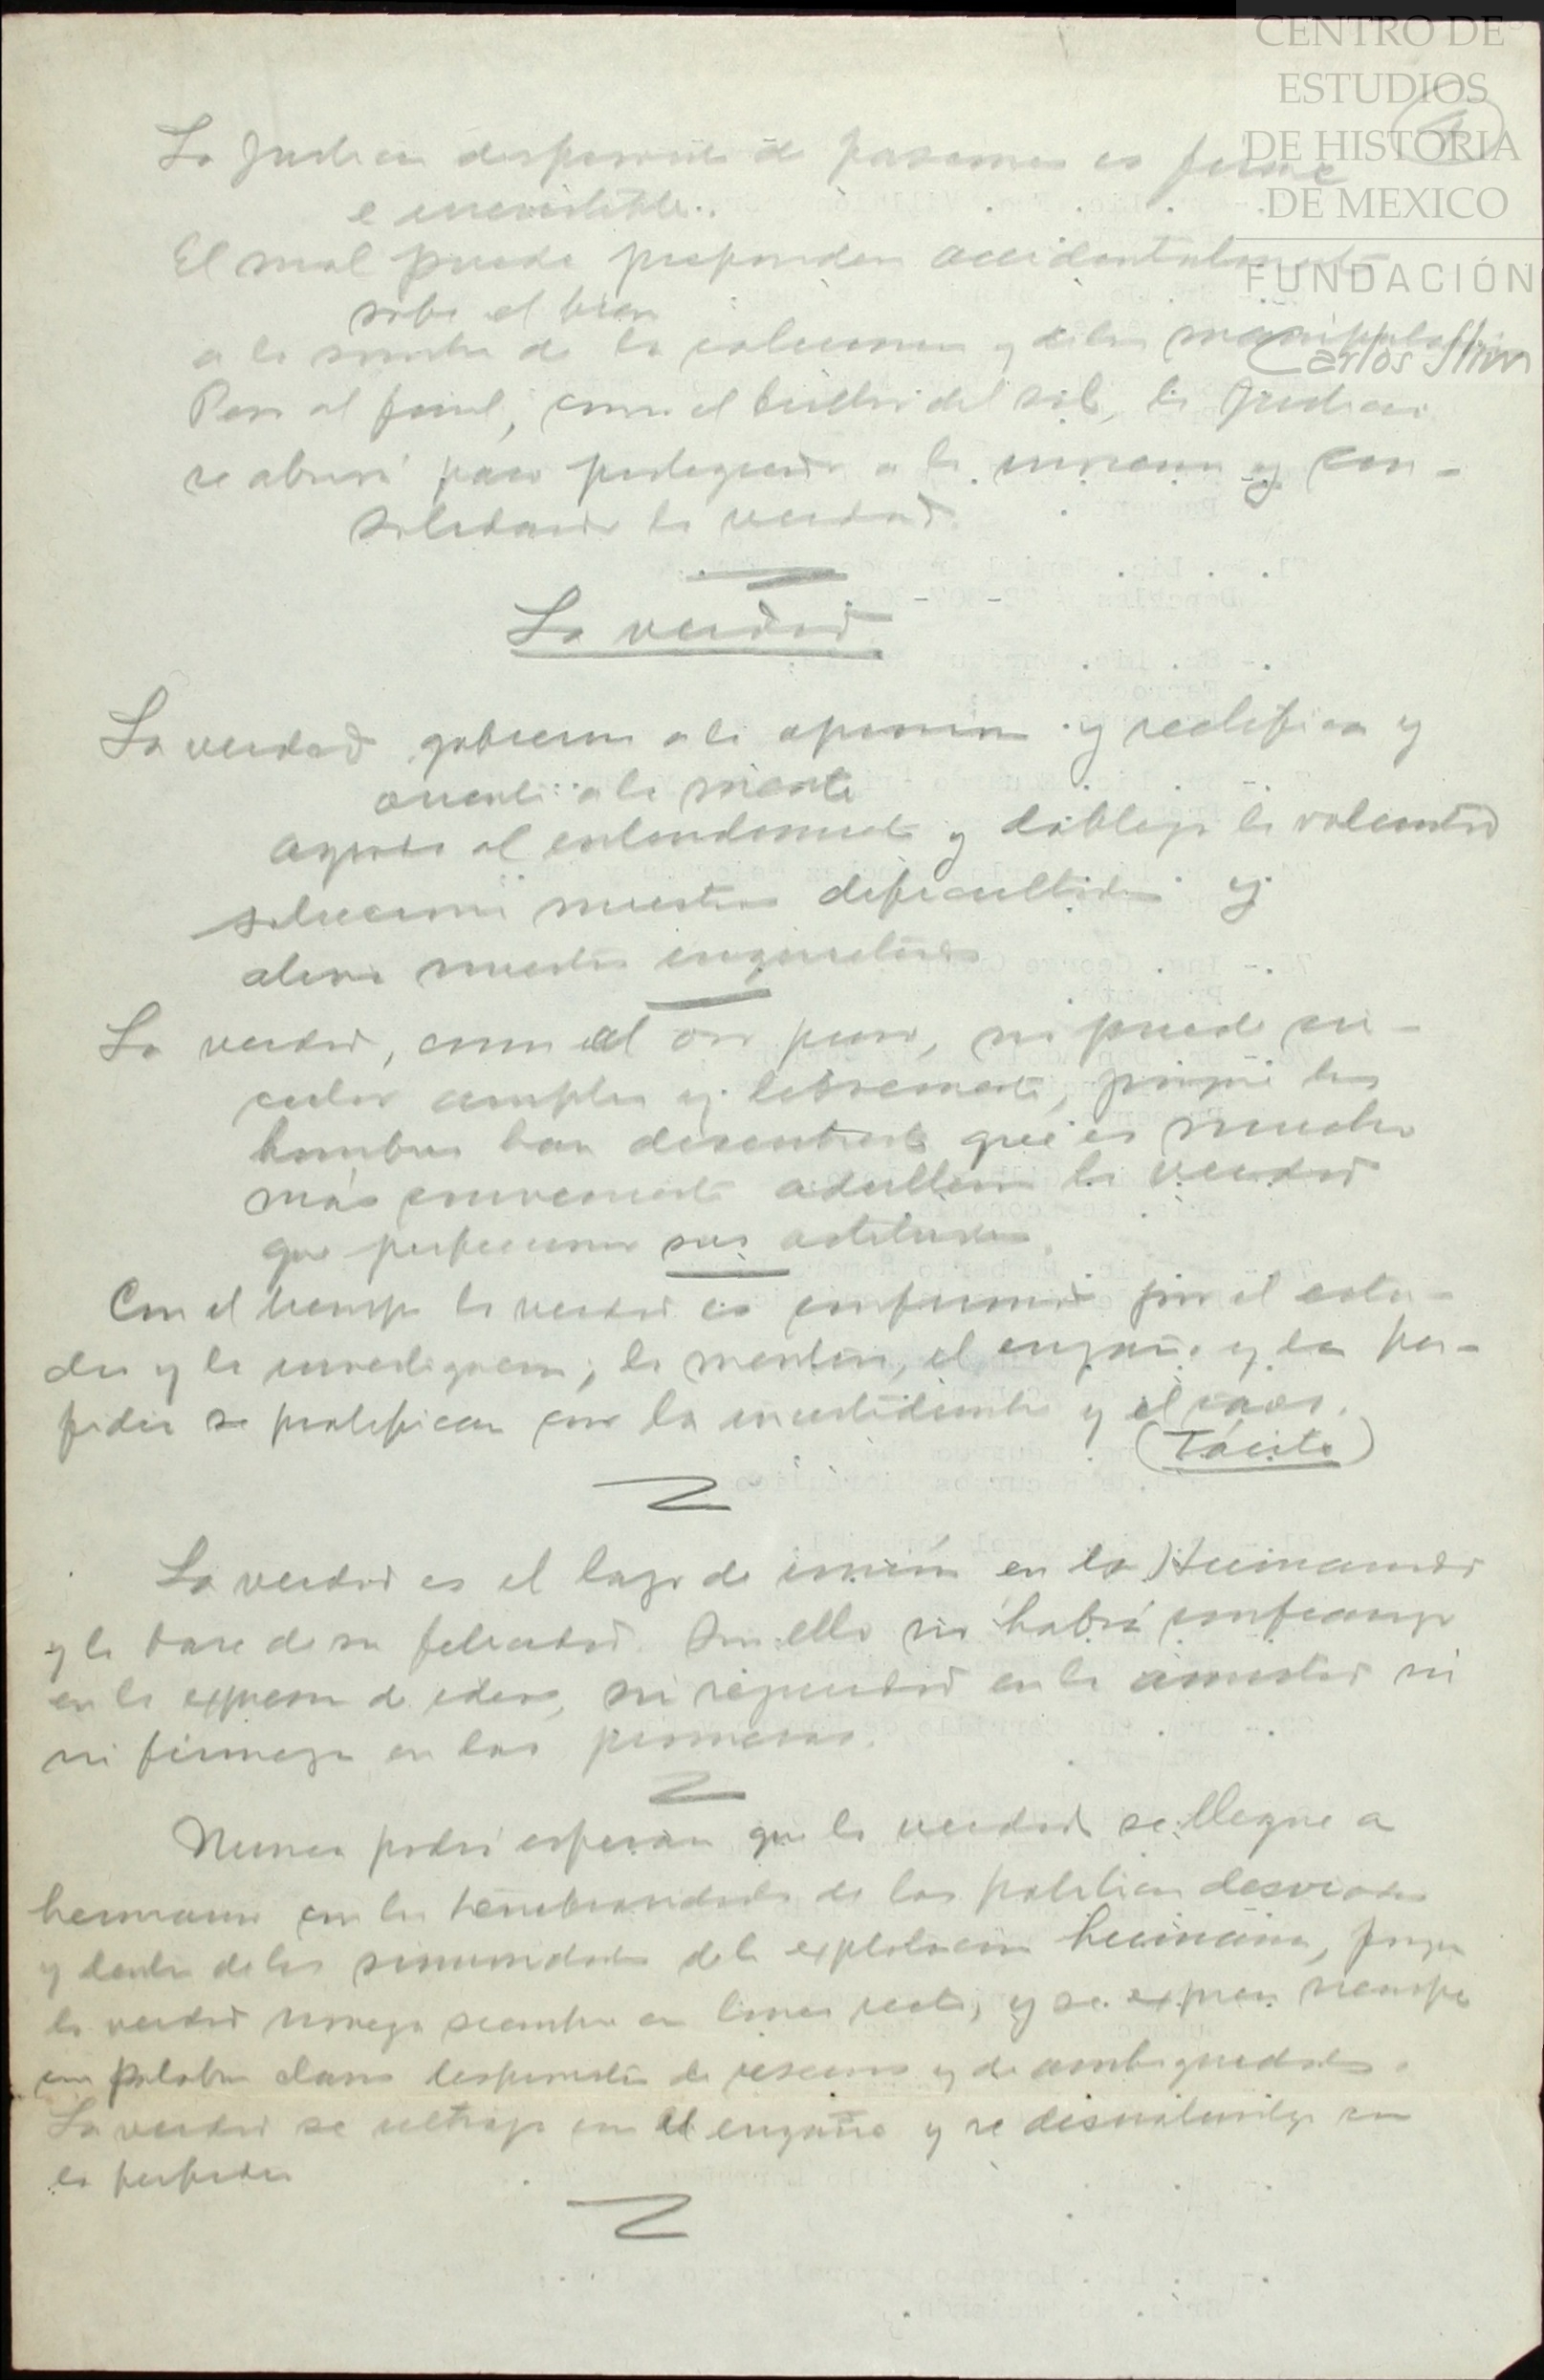 CENTRO DE
ESTUDIOS
DE HISTORIA
DE MEXICO
FUNDACIÓN
Carlos Slim
La justicia desprovista de pasiones es firme
e irresistible.
El mal puede preponderar accidentalmente
sobe el bien
a la sombra de la y de las
Pero al final, como el brillo del sol, la justicia
se abrirá paso protegiendo a la y con-
solidando la verdad.
La verdad
La verdad gobierna a la opinion y rectifica y
orienta a la mente
ayuda al entendimiento y doblega la voluntad
soluciona nuestras dificultades y
alivia nuestras inquietudes
La verdad, como el oro puro, no puede cir-
cular amplia y libremente, porque los
hombres han descubierto que es mucho
más conveniente adulterar la verdad
que perfeccionar sus actitudes.
Con el tiempo la verdad es confirmada por el estu-
dio y la investigacion; la mentira, el engaño y la per-
fidia se prolifican con la incertidumbre y el caos.
(Tácito)
La verdad es el lazo de unión en la Humanidad
y la base de su felicidad. Sin ella no habrá confianza
en la expresion de ideas, ni seguridad en la amistad ni
ni firmeza en las promesas.
Nunca podrá esperar que la verdad se llegue a
hermanar con las tenebrosidades de las politicas desviadas
y dentro de las sinuosidades de la explotacion humana, porque
la verdad navega siempre en linea recta, y se expresa siempre
con palabras claras desprovistas de y de ambiguedades.
La verdad se ultraja con el engaño y se desnaturaliza con
la perfidia